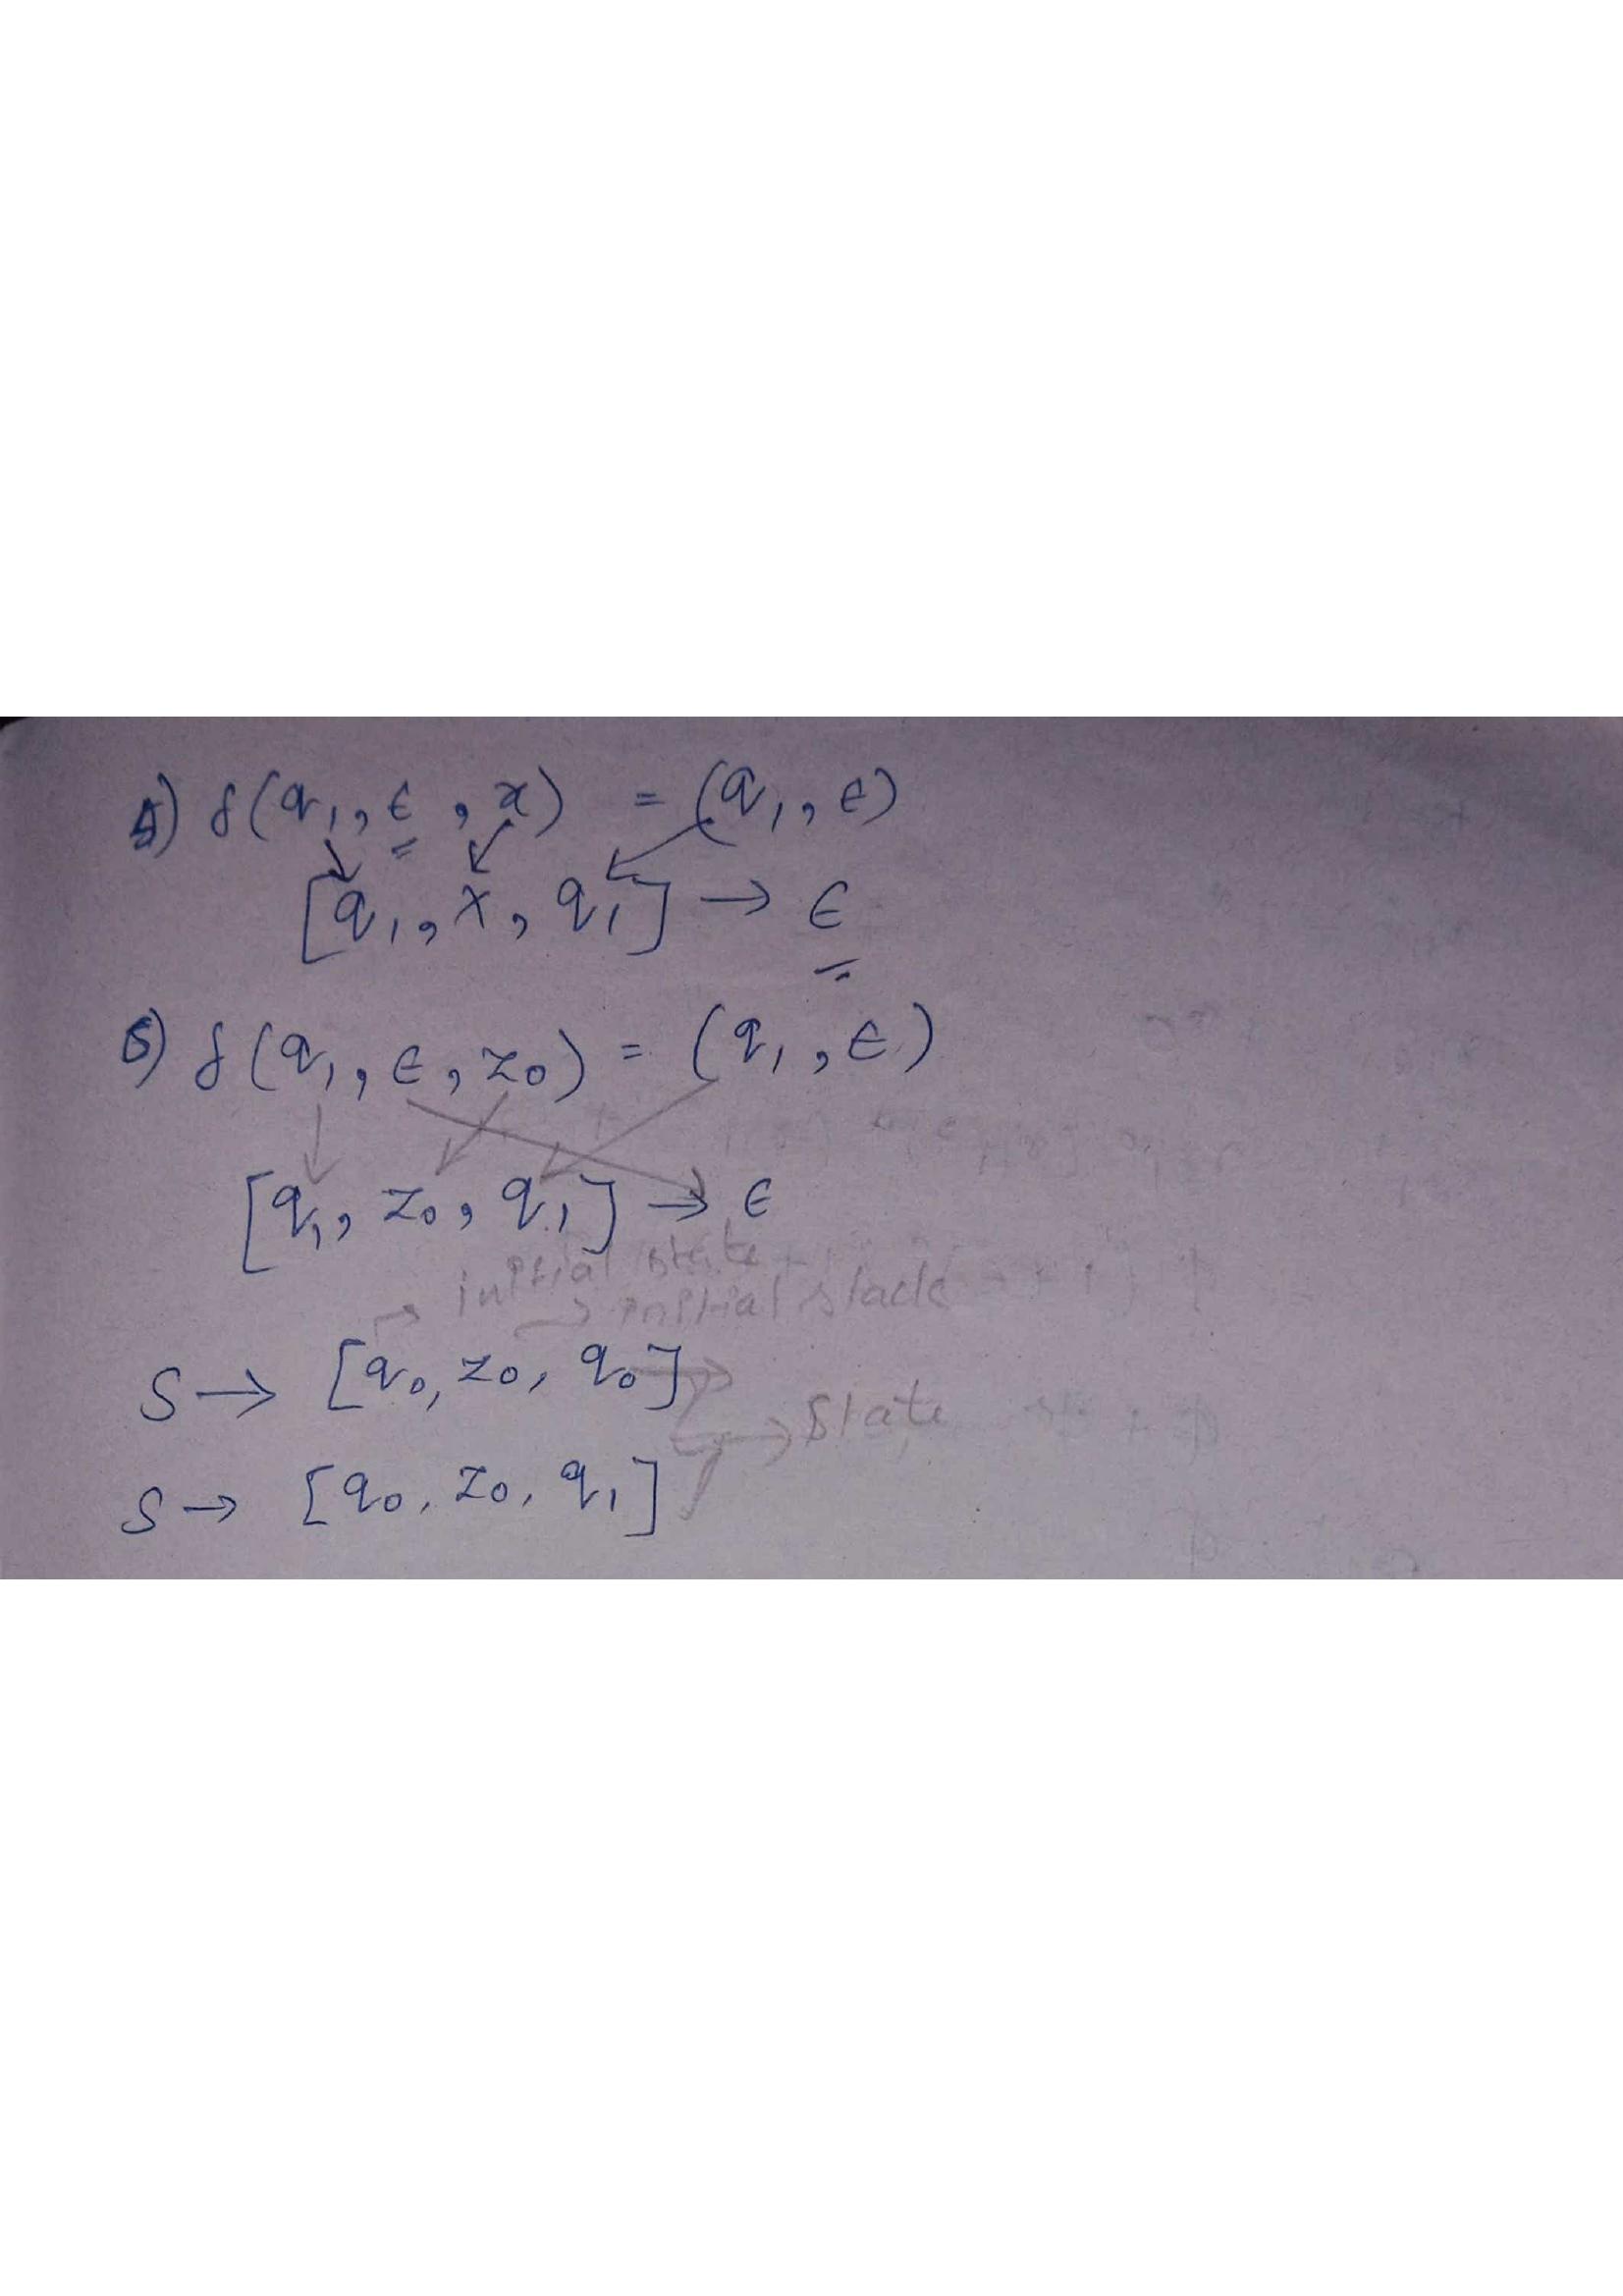 5) δ(q₁, ε, x) = (q₁, ε)
[q₁, x, q₁] → ε
6) δ(q₁, ε, z₀) = (q₁, ε)
[q₁, z₀, q₁] → ε
initial state
initial stack
S → [q₀, z₀, q₀]
State
S → [q₀, z₀, q₁]